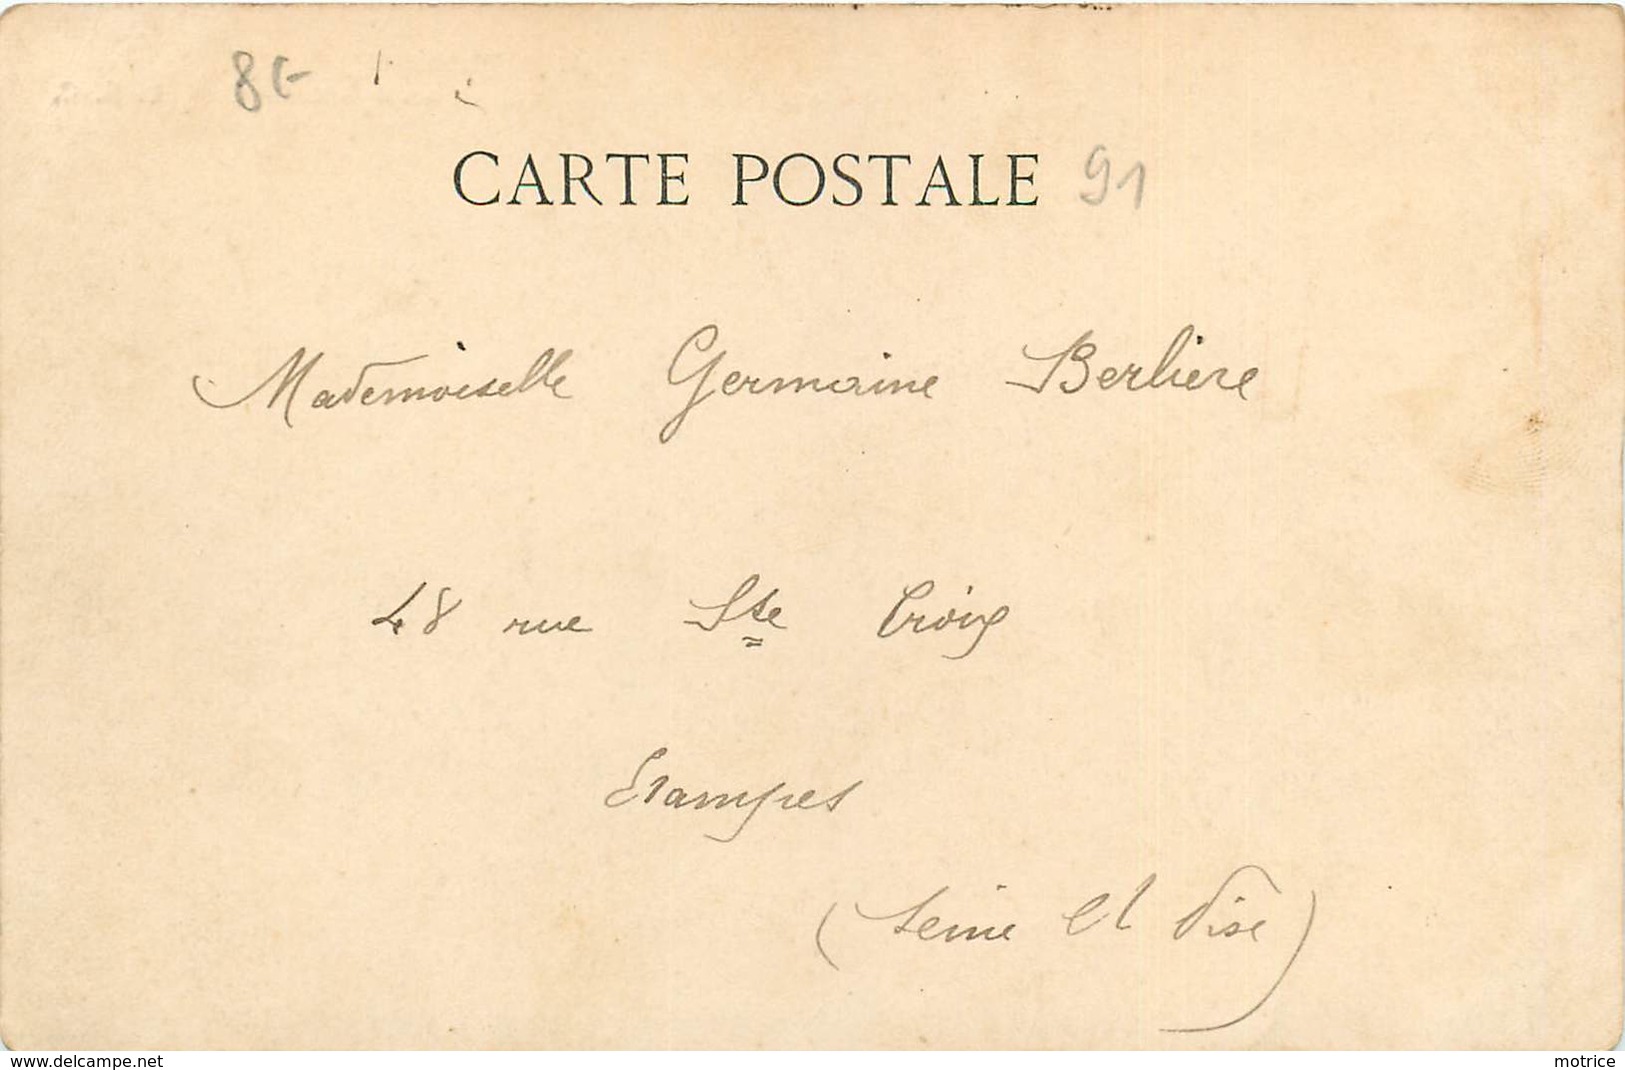 8€
CARTE POSTALE 91
Mademoiselle Germaine Berliere
48 rue Ste Croix
Etampes
(Seine et Oise)
www.delcampe.net
motrice